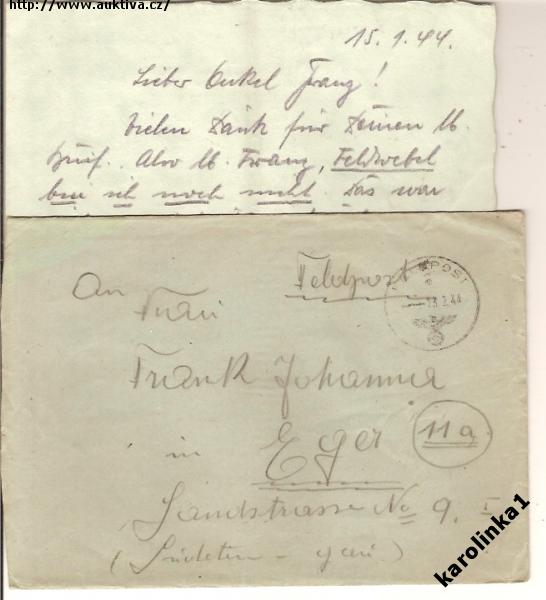 http://www.auktiva.cz/
15.1.44.
Lieber Onkel Franz!
Vielen Dank für Deinen lb.
Brief. Also lb. Franz, Feldwebel
bin ich noch nicht. Das war
Feldpost
An
Frau
Frank Johanna
in
Eger
11a
Landstrasse No 9. I
(Sudeten-gau)
karolinka1